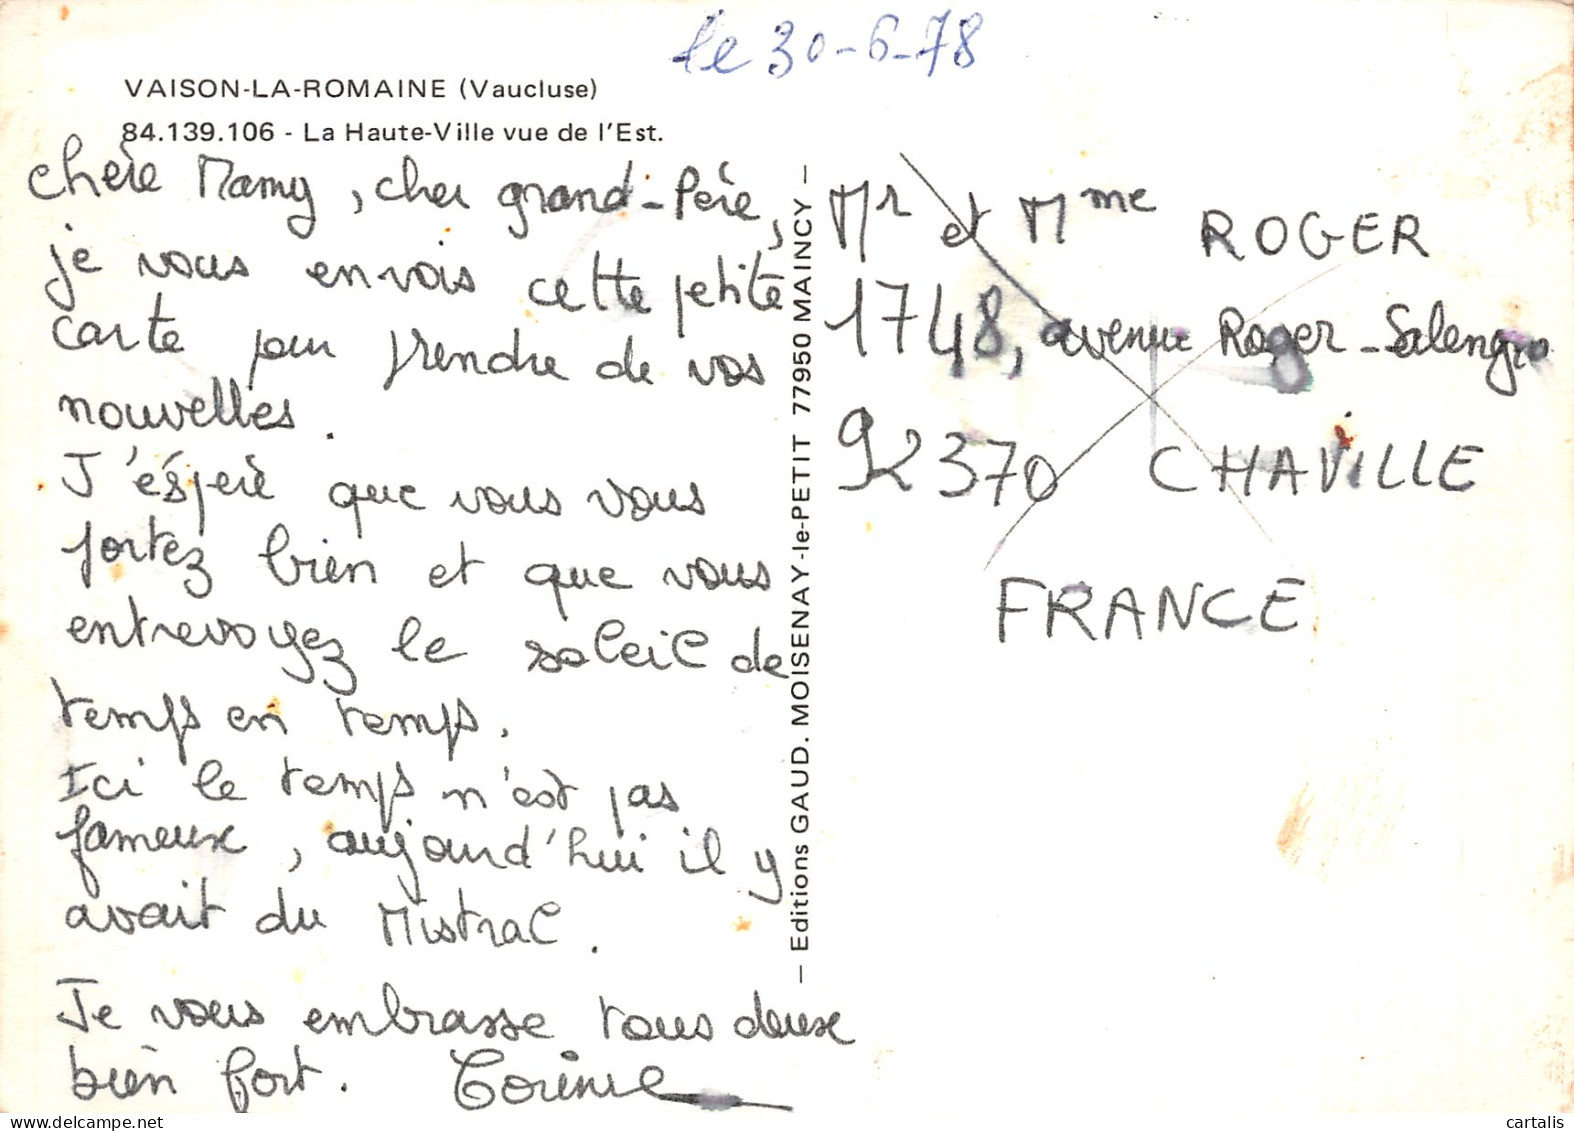 le 30-6-78
VAISON-LA-ROMAINE (Vaucluse)
84.139.106 - La Haute-Ville vue de l'Est.
Chère Mamy, cher grand-Père,
je vous envois cette petite
carte pour prendre de vos
nouvelles.
J'éspère que vous vous
portez bien et que vous
entrevoyez le soleil de
temps en temps.
Ici le temps n'est pas
fameux, aujourd'hui il y
avait du Mistral.
Je vous embrasse tous deux
bien fort. Corinne
— Editions GAUD. MOISENAY-le-PETIT 77950 MAINCY —
Mr et Mme ROGER
1748, avenue Roger-Salengro
92370 CHAVILLE
FRANCE
www.cartalis.com